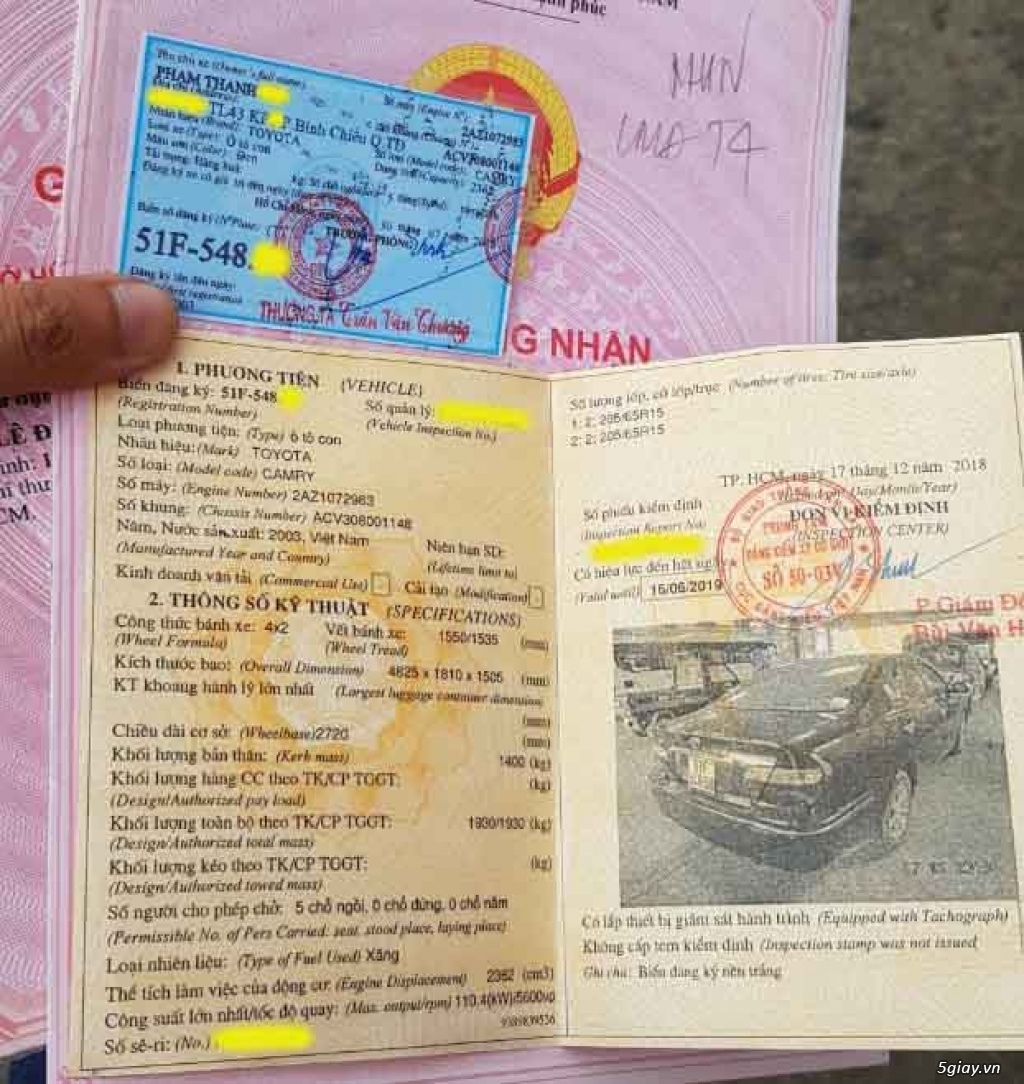 phúc
MHN
UMA T4
Tên chủ xe (Owner's full name):
PHẠM THANH
TL43 KP Bình Chiểu Q.TĐ
Nhãn hiệu (Brand): TOYOTA
Loại xe (Type): Ô tô con
Màu sơn (Color): Đen
Tải trọng: Hàng hoá:
Số máy (Engine N°):
2AZ1072983
ACV308001148
Số loại (Model code): CAMRY
Dung tích (Capacity): 2362
Biển số đăng ký (N° Plate)
51F-548.
TRƯỞNG PHÒNG
Đăng ký lần đầu ngày:
THƯỢNG TÁ Trần Văn Thương
G NHẬN
LÊ Đ
CM.
1. PHƯƠNG TIỆN (VEHICLE)
Biển đăng ký: 51F-548
(Registration Number)
Số quản lý:
(Vehicle Inspection No.)
Loại phương tiện: (Type) ô tô con
Nhãn hiệu: (Mark) TOYOTA
Số loại: (Model code) CAMRY
Số máy: (Engine Number) 2AZ1072983
Số khung: (Chassis Number) ACV308001148
Năm, Nước sản xuất: 2003, Việt Nam
(Manufactured Year and Country)
Niên hạn SD:
(Lifetime limit to)
Kinh doanh vận tải (Commercial Use) Cải tạo (Modification)
2. THÔNG SỐ KỸ THUẬT (SPECIFICATIONS)
Công thức bánh xe: 4x2 Vết bánh xe: 1550/1535 (mm)
(Wheel Formula) (Wheel Tread)
Kích thước bao: (Overall Dimension) 4825 x 1810 x 1505 (mm)
KT khoang hành lý lớn nhất (Largest luggage container dimension)
(mm)
Chiều dài cơ sở: (Wheelbase) 2720 (mm)
Khối lượng bản thân: (Kerb mass) 1400 (kg)
Khối lượng hàng CC theo TK/CP TGGT: (kg)
(Design/Authorized pay load)
Khối lượng toàn bộ theo TK/CP TGGT: 1930/1930 (kg)
(Design/Authorized total mass)
Khối lượng kéo theo TK/CP TGGT: (kg)
(Design/Authorized towed mass)
Số người cho phép chở: 5 chỗ ngồi, 0 chỗ đứng, 0 chỗ nằm
(Permissible No. of Pers Carried: seat, stood place, laying place)
Loại nhiên liệu: (Type of Fuel Used) Xăng
Thể tích làm việc của động cơ: (Engine Displacement) 2362 (cm3)
Công suất lớn nhất/tốc độ quay: (Max. output/rpm) 110.4(kW)/5600v/
9389839536
Số sê-ri: (No.)
Số lượng lốp, cỡ lốp/trục (Number of tires; Tire size/axle)
1: 2: 205/65R15
2: 2: 205/65R15
TP. HCM, ngày 17 tháng 12 năm 2018
(Day/Month/Year)
Số phiếu kiểm định
(Inspection Report No)
ĐƠN VỊ KIỂM ĐỊNH
(INSPECTION CENTER)
Có hiệu lực đến hết ngày
(Valid until) 15/06/2019
TRUNG TÂM
ĐĂNG KIỂM XE CƠ GIỚI
SỐ 50-03V
P.Giám Đ
Bùi Văn H
Có lắp thiết bị giám sát hành trình (Equipped with Tachograph)
Không cấp tem kiểm định (Inspection stamp was not issued
Ghi chú: Biển đăng ký nền trắng
5giay.vn